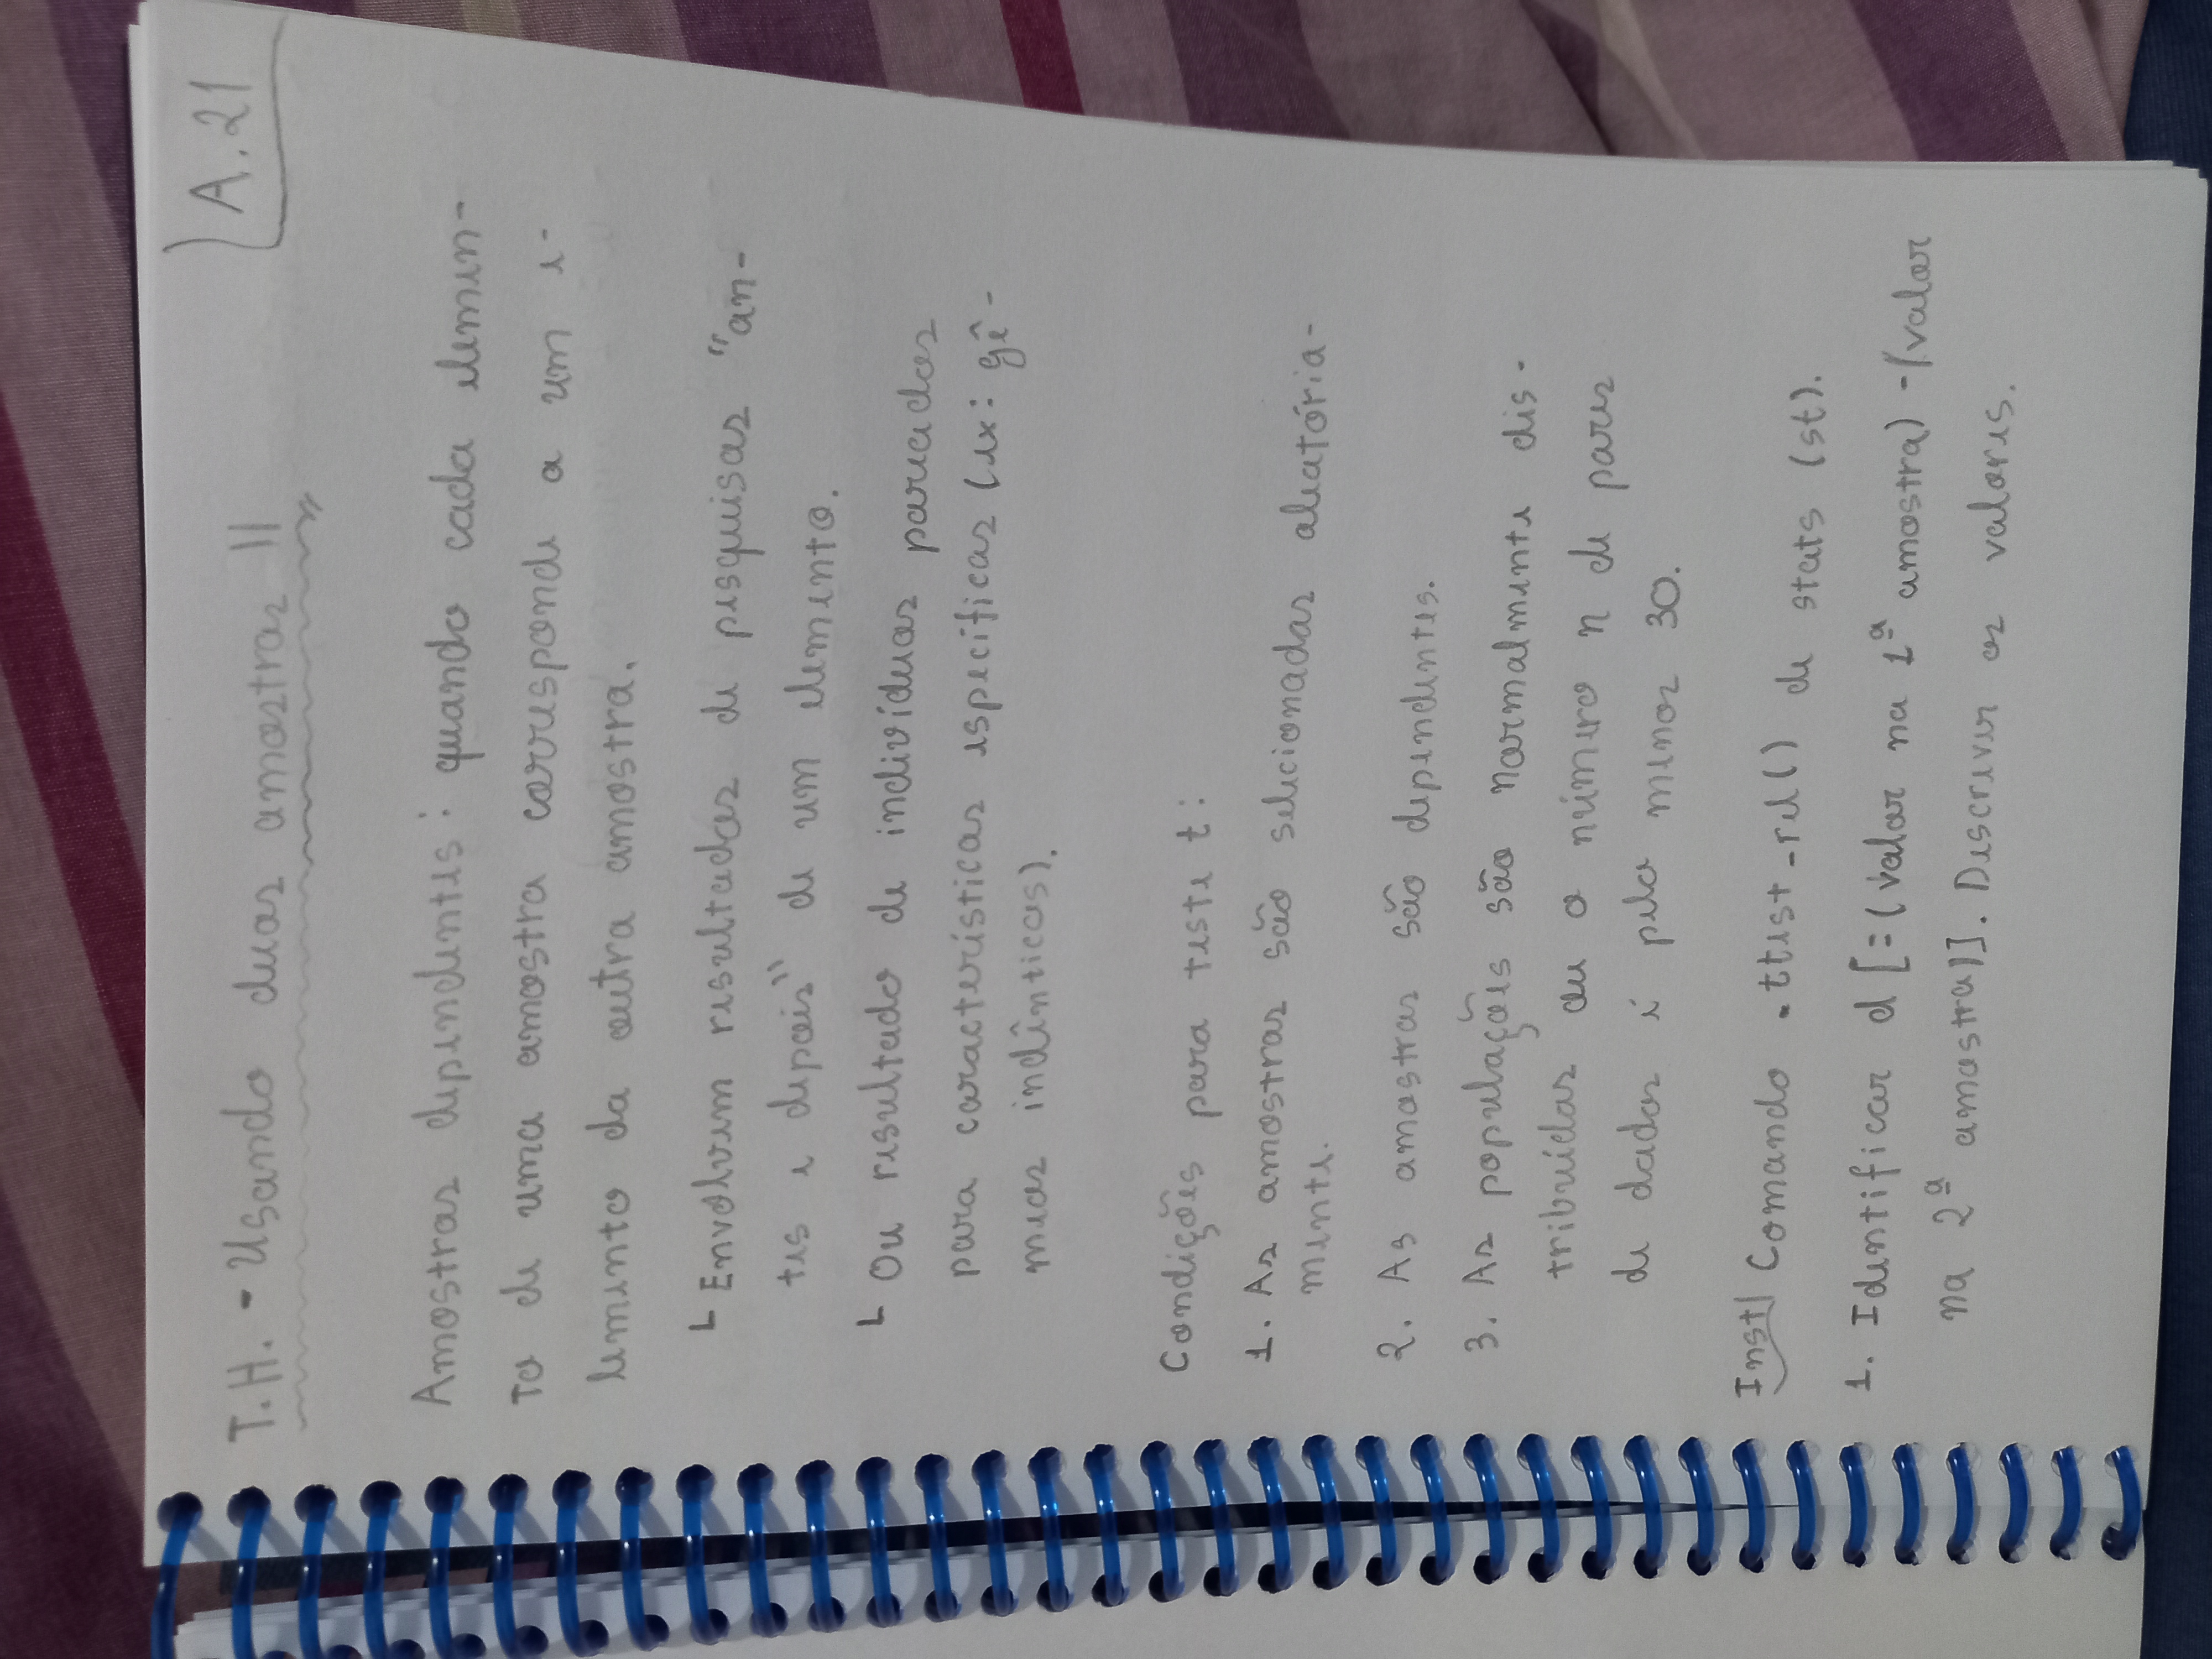 A.21
T.H. - Usando duas amostras II
Amostras dependentes: quando cada elemen-
to de uma amostra corresponde a um e-
lemento da outra amostra.
└ Envolvem resultados de pesquisas "an-
tes e depois" de um elemento.
└ Ou resultado de indivíduos pareados
para características específicas (ex: gê-
meos indênticos).
Condições para teste t:
1. As amostras são selecionadas aleatória-
mente.
2. As amostras são dependentes.
3. As populações são normalmente dis-
tribuídas ou o número n de pares
de dados é pelo menos 30.
Inst| Comando .ttest_rel() de stats (st).
1. Identificar d [=(valor na 1ª amostra) -(valor
na 2ª amostra)]. Descrever os valores.